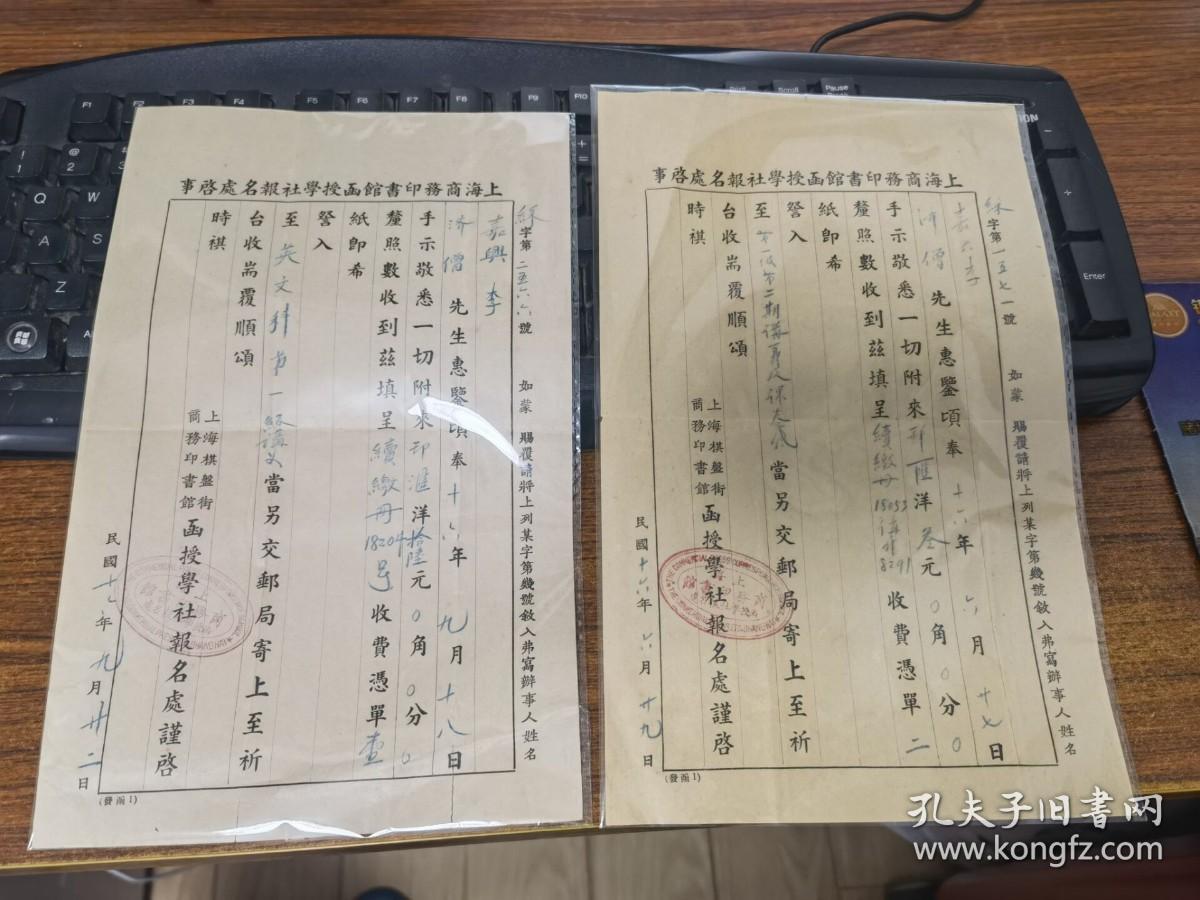 上海商務印書館函授學社報名處啓事
綵字第一五七一號 如蒙 賜覆請將上列某字第幾號敘入弗寫辦事人姓名
嘉興李
濟僧 先生惠鑒頃奉 十六年 六月 廿七日
手示敬悉一切附來郵匯洋叁元〇角〇分〇
釐照數收到茲填呈續繳册18053 8291 收費憑單二
紙卽希
詧入
至第一級第二期講義及課 當另交郵局寄上至祈
台收耑覆順頌
時祺
上海棋盤街
商務印書館
函授學社報名處謹啓
民國十六年六月廿九日
(發函1)
上海商務印書館函授學社報名處啓事
綵字第二五六六號 如蒙 賜覆請將上列某字第幾號敘入弗寫辦事人姓名
嘉興 李
濟僧 先生惠鑒頃奉 十六年 九月十八日
手示敬悉一切附來郵滙洋拾陸元〇角〇分〇
釐照數收到茲填呈續繳册18204號收費憑單壹
紙卽希
詧入
至英文科第一級講義當另交郵局寄上至祈
台收耑覆順頌
時祺
上海棋盤街
商務印書館
函授學社報名處謹啓
民國十七年九月廿二日
(發函1)
F1
F2
F3
F4
F5
F6
F7
F8
F9
F10
Scroll
Pause
Enter
孔夫子旧书网
www.kongfz.com